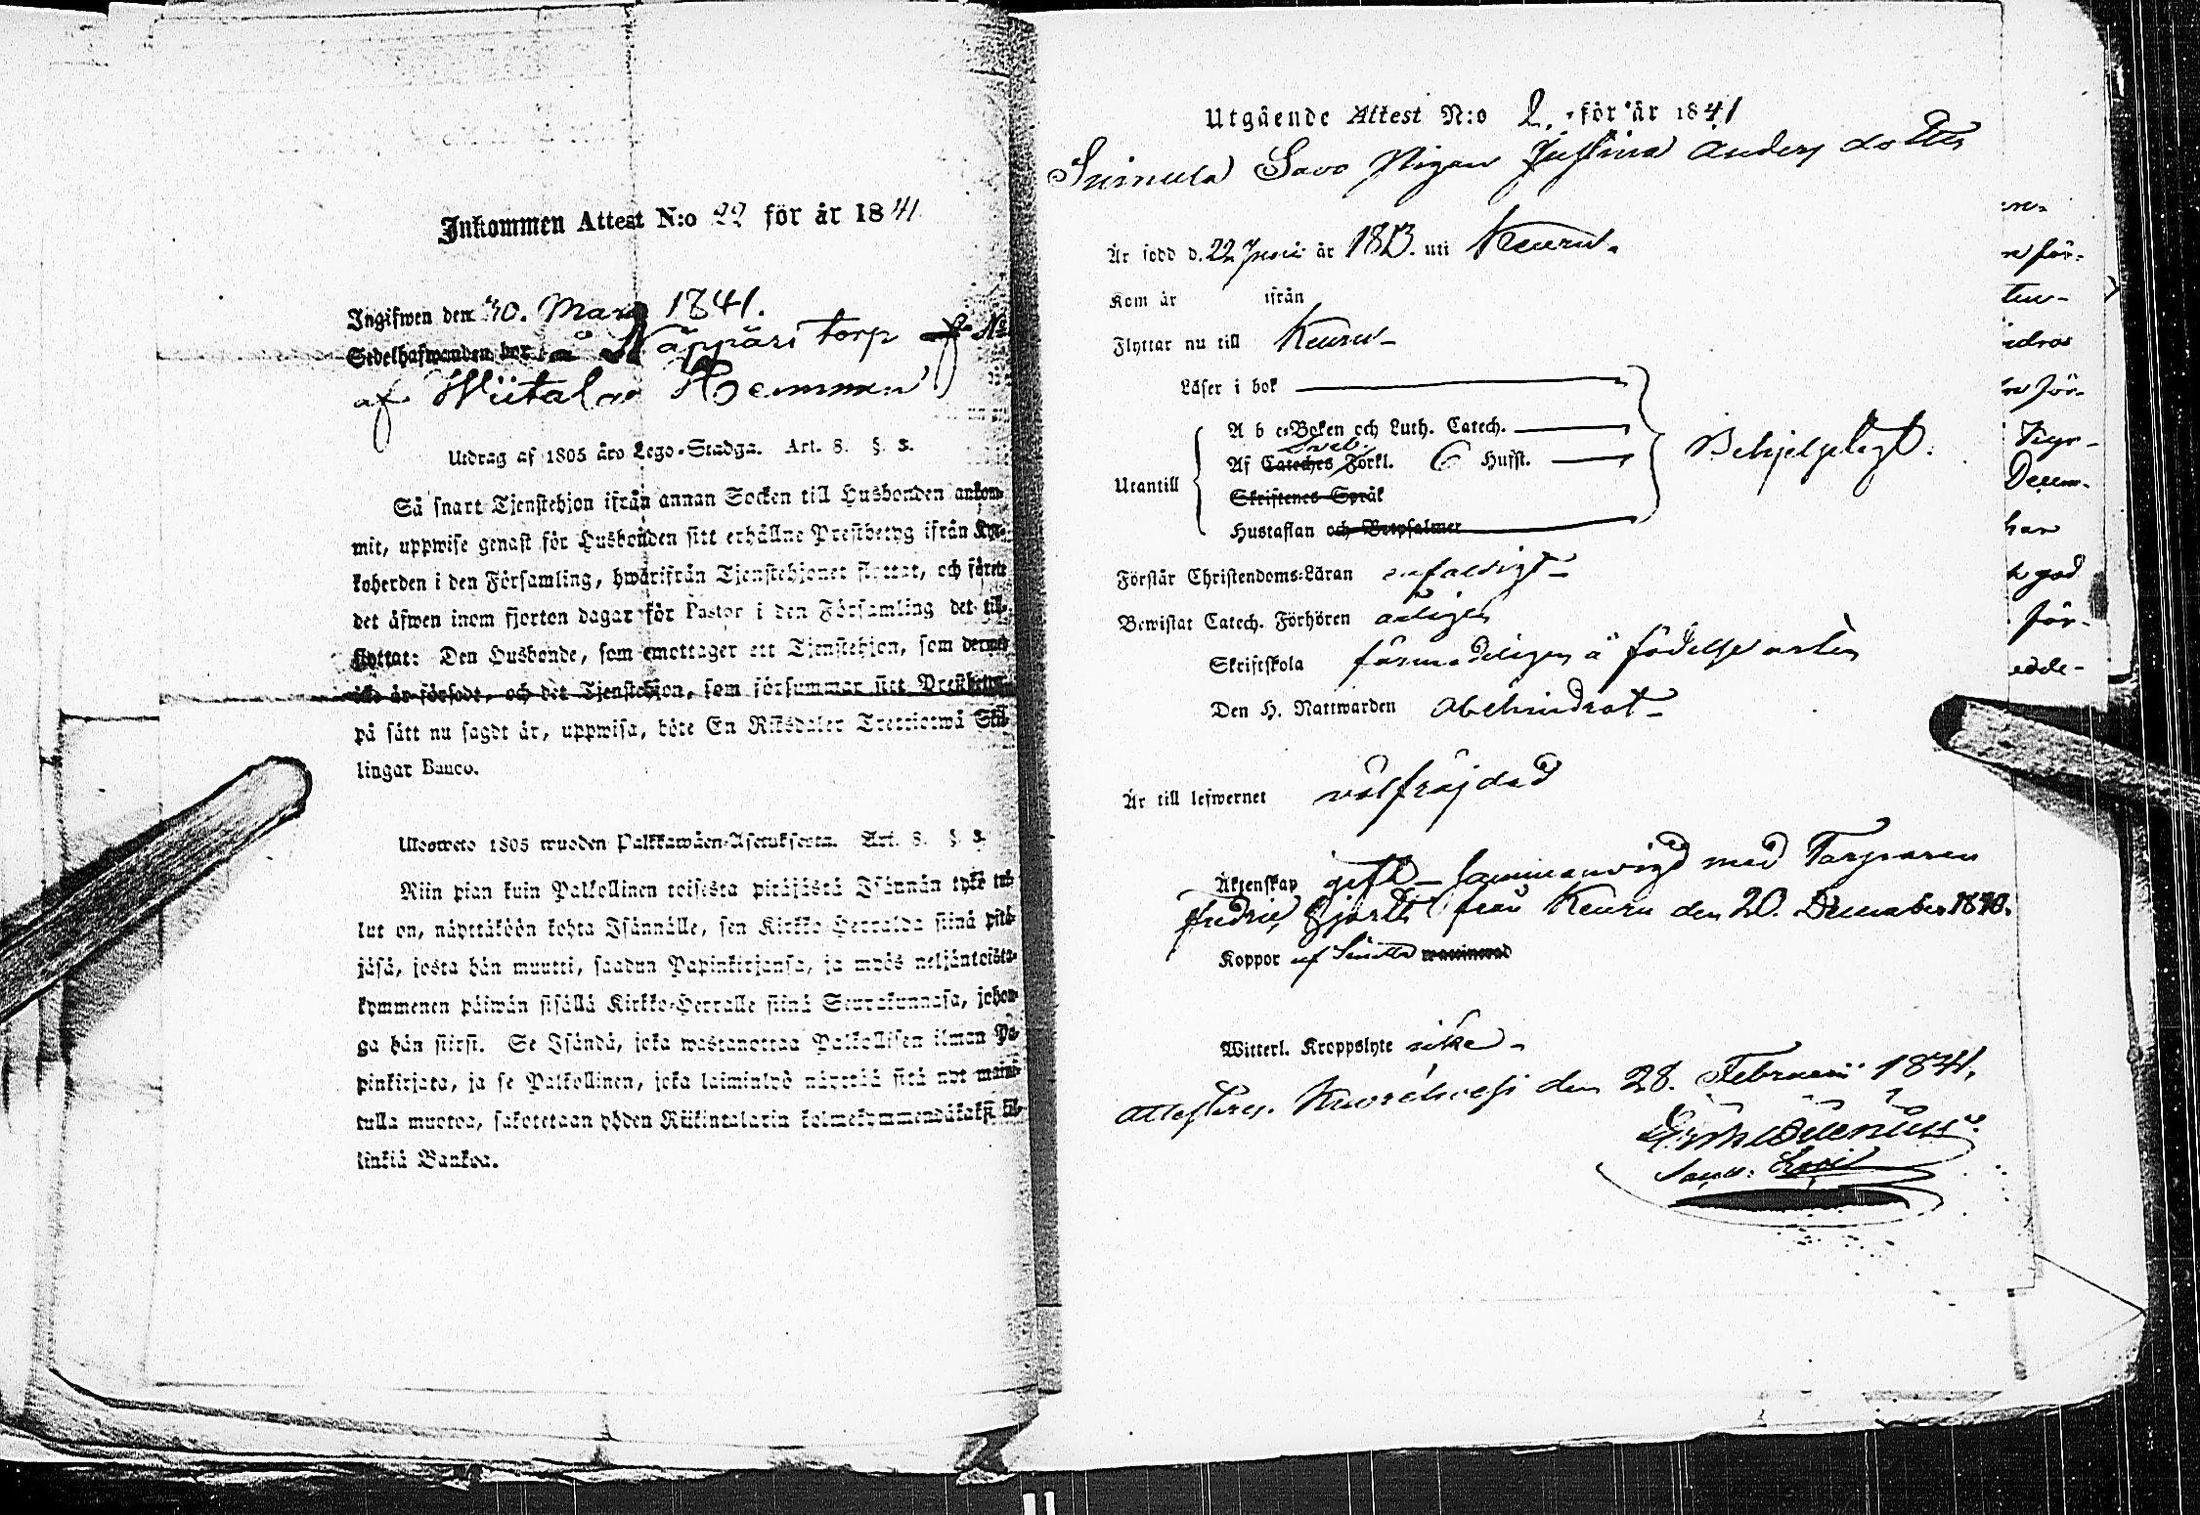 Inkommen Attest N:o 22 för år 1841
Ingifwen den 30. Mars 1841.
Sedelhafwanden bor å Näppäri torp
af Wiitala Hemman
Utdrag af 1805 års Lego-Stadga. Art. 8. §. 3.
Så snart Tjenstehjon ifrån annan Socken till Husbonden ankom-
mit, uppwise genast för Husbonden sitt erhållne Prestbetyg ifrån Kyr-
koherden i den Församling, hwarifrån Tjenstehjonet flyttat, och förete
det äfwen inom fjorton dagar för Pastor i den Församling det till-
flyttat: Den Husbonde, som emottager ett Tjenstehjon, som dermed
icke är försedt, och det Tjenstehjon, som försummar sitt Prestbetyg
på sätt nu sagdt är, uppwisa, böte En Riksdaler Trettiotwå Skil-
lingar Banco.
Ulosweto 1805 wuoden Palkkawäen-Asetuksesta. Art. 8. §. 3.
Niin pian kuin Palkollinen toisesta pitäjästä Isännän tykö tul-
lut on, näyttäköön kohta Isännälle, sen Kirkko-Herralda siinä pitä-
jäsä, josta hän muutti, saadun Papinkirjansa, ja myös neljäntoista-
kymmenen päiwän sisällä Kirkko-Herralle siinä Seurakunnasa, johon-
ga hän siirsi. Se Isändä, joka wastanottaa Palkollisen ilman Pa-
pinkirjata, ja se Palkollinen, joka laiminlyö näyttää sitä nyt maini-
tulla muotoa, sakotetaan yhden Riikintalarin kolmekymmendäkaksi kil-
linkiä Bankoa.
Utgående Attest N:o 2. för år 1841
Suimula Savo Pigan Justina Anders dotter
Är född d. 22 Junii år 1813. uti Keuru.
Kom år ifrån
Flyttar nu till Keuru
Läser i bok
A b c-Boken och Luth. Catech.
Af Cateches Förkl. 6 Hufst.
Utantill
Skriftenes Språk
Hustaflan och Botpsalmer
Behjelpligt.
Förstår Christendoms-Läran enfaldigt
Bewistat Catech. Förhören årligen
Skriftskola förmodeligen å födelse orten
Den H. Nattwarden obehindrat
Är till lefwernet välfräjdad
Äktenskap gift – sammanvigd med Torparen
Fredric Hjort från Keuru den 20. December 1840.
Koppor af waccinerad
Witterl. Kroppslyte icke
Attesterer. Kuorehvesi den 28. Februarii 1841.
re-
för-
ten-
för-
Decem-
har
god
för-